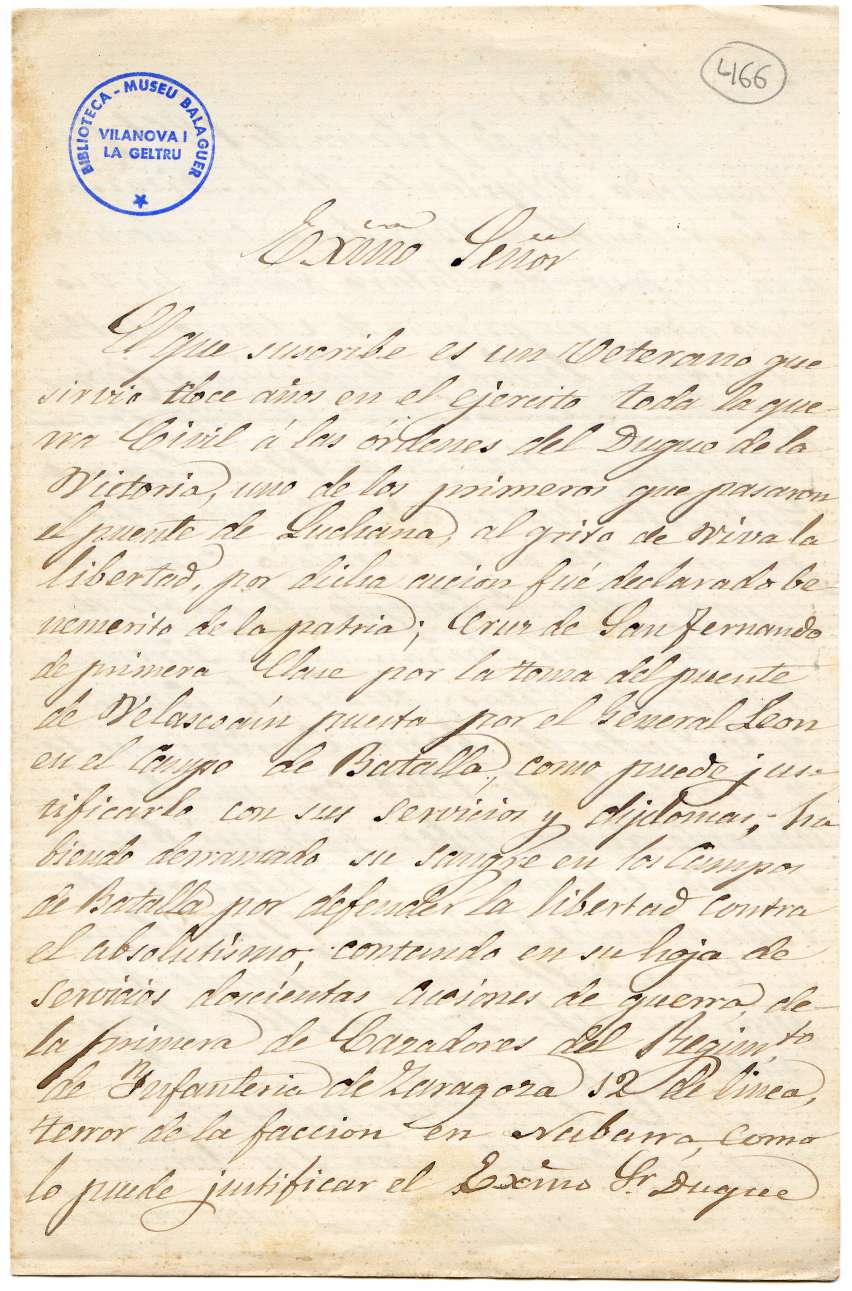 4166
BIBLIOTECA - MUSEU BALAGUER
VILANOVA I
LA GELTRU
Exm̃o Señor
El que suscribe es un Veterano que
sirvio doce años en el ejercito toda la gue-
rra Civil á las órdenes del Duque de la
Victoria, uno de los primeros que pasaron
el puente de Luchana, al grito de viva la
libertad, por dicha accion fué declarado be
nemerito de la patria; Cruz de San Fernando
de primera Clase por la toma del puente
de Velascoáin puesta por el General Leon
en el Campo de Batalla, como puede jus-
tificarlo con sus servicios y diplomas, ha
biendo derramado su sangre en los Campos
de Batalla por defender la libertad contra
el absolutismo, contando en su hoja de
servicios doscientas acciones de guerra, de
la primera de Cazadores del Regim.to
de Infanteria de Zaragoza 12 de linea,
terror de la faccion en Nabarra, como
lo puede justificar el Exm̃o Sr. Duque